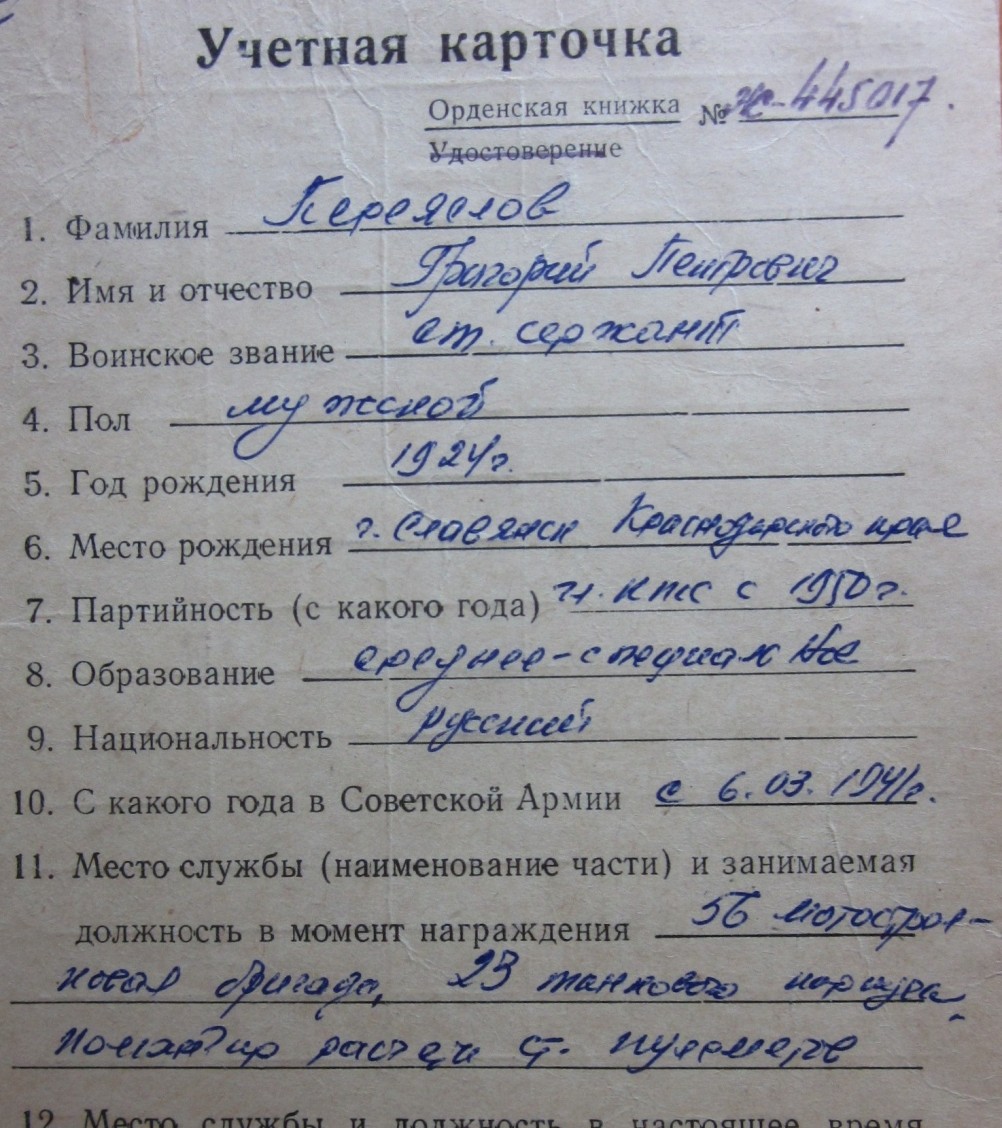 Учетная карточка
Орденская книжка № Ж-445017.
Удостоверение
1. Фамилия Переяслов
2. Имя и отчество Григорий Петрович
3. Воинское звание ст. сержант
4. Пол мужской
5. Год рождения 1924г.
6. Место рождения г. Славянск Краснодарского края
7. Партийность (с какого года) чл. КПСС с 1950г.
8. Образование средне-специальное
9. Национальность русский
10. С какого года в Советской Армии с 6.03. 1941г.
11. Место службы (наименование части) и занимаемая
должность в момент награждения 56 мотострел-
ковая бригада, 23 танкового корпуса,
командир расчета ст. пулемета
12. Место службы и должность в настоящее время